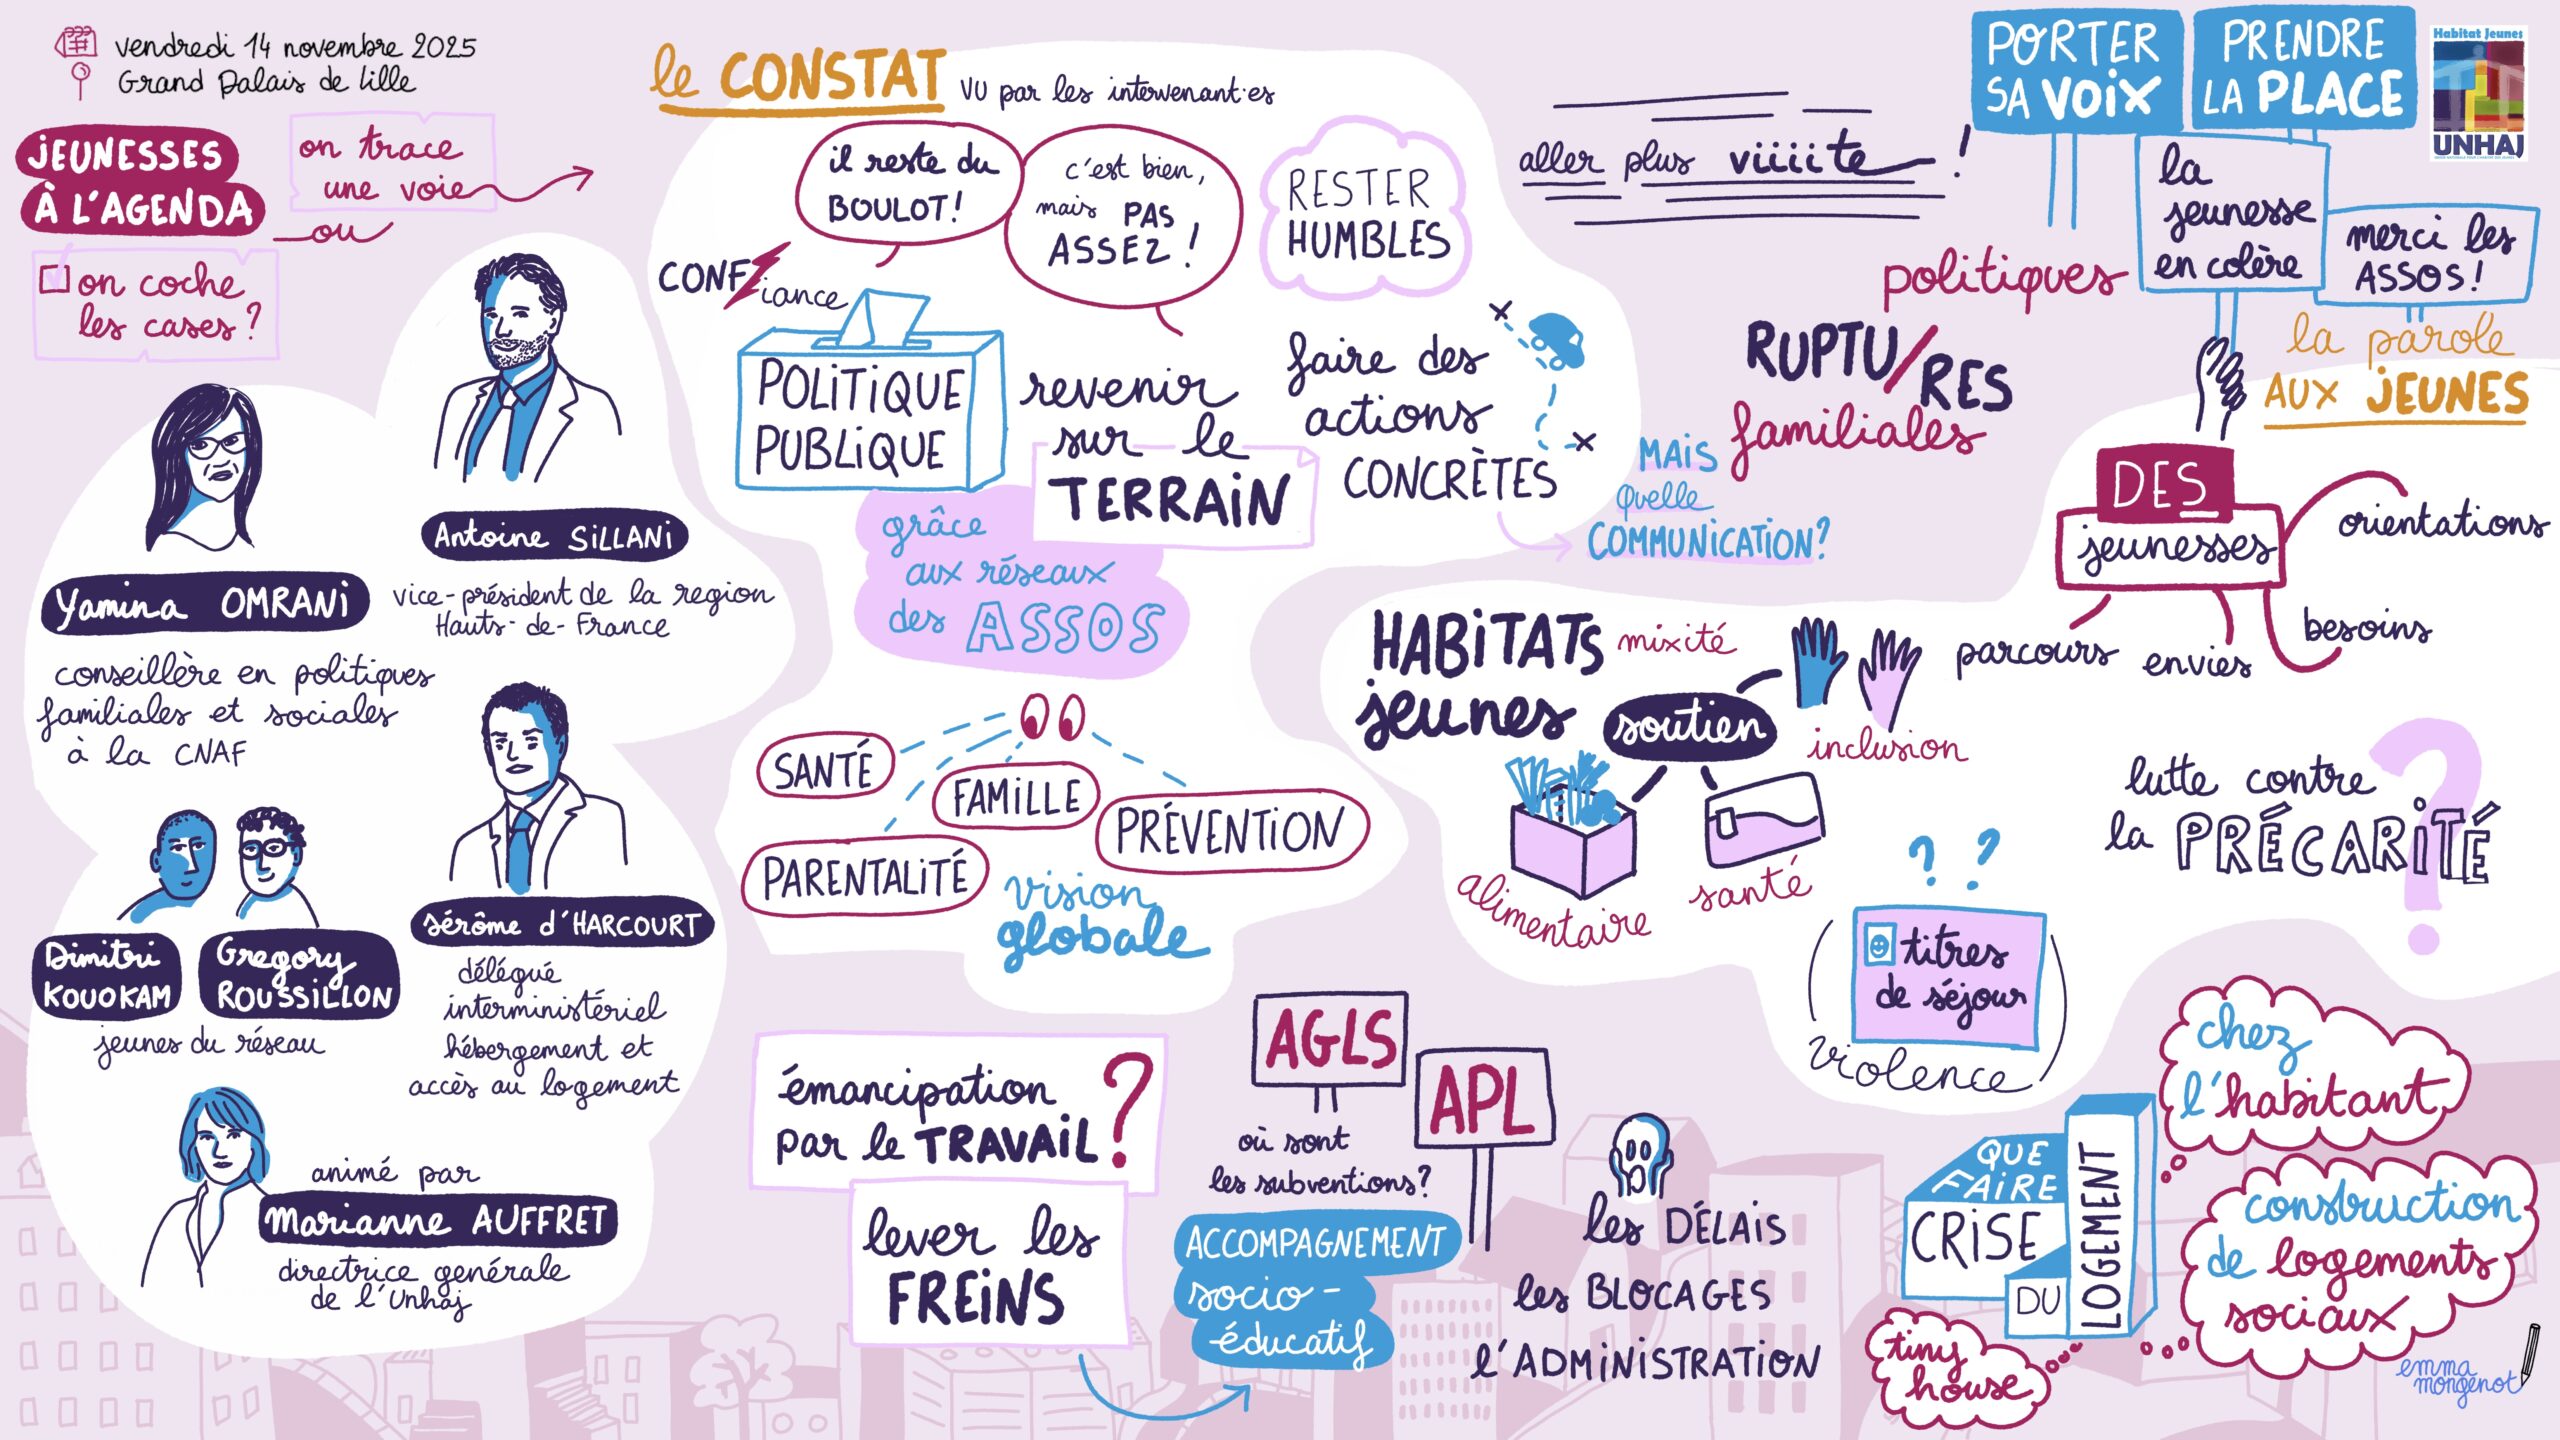 vendredi 14 novembre 2025
Grand Palais de Lille
JEUNESSES
À L'AGENDA
on trace
une voie
ou
on coche
les cases ?
Antoine SILLANI
vice-président de la region
Hauts-de-France
Yamina OMRANI
conseillère en politiques
familiales et sociales
à la CNAF
Jérôme d'HARCOURT
délégué
interministériel
hébergement et
accès au logement
Dimitri
KOUOKAM
Gregory
ROUSSILLON
jeunes du réseau
animé par
Marianne AUFFRET
directrice générale
de l'Unhaj
le CONSTAT vu par les intervenant·es
il reste du
BOULOT !
c'est bien,
mais PAS
ASSEZ !
RESTER
HUMBLES
CONFiance
POLITIQUE
PUBLIQUE
revenir
sur le
TERRAIN
grâce
aux réseaux
des ASSOS
faire des
actions
CONCRÈTES
MAIS
quelle
COMMUNICATION ?
SANTÉ
FAMILLE
PRÉVENTION
PARENTALITÉ
vision
globale
émancipation
par le TRAVAIL ?
lever les
FREINS
AGLS
APL
où sont
les subventions ?
ACCOMPAGNEMENT
socio-
éducatif
les DÉLAIS
les BLOCAGES
l'ADMINISTRATION
aller plus viiiite !
PORTER
SA VOIX
PRENDRE
LA PLACE
Habitat Jeunes
UNHAJ
la
jeunesse
en colère
merci les
ASSOS !
la parole
AUX JEUNES
politiques
RUPTU/RES
familiales
DES
jeunesses
orientations
besoins
envies
parcours
HABITATS
jeunes
mixité
soutien
inclusion
alimentaire
santé
lutte contre
la PRÉCARITÉ ?
? ?
titres
de séjour
(violence)
QUE
FAIRE
CRISE
DU
LOGEMENT
chez
l'habitant
construction
de logements
sociaux
tiny
house
emma
mongenot